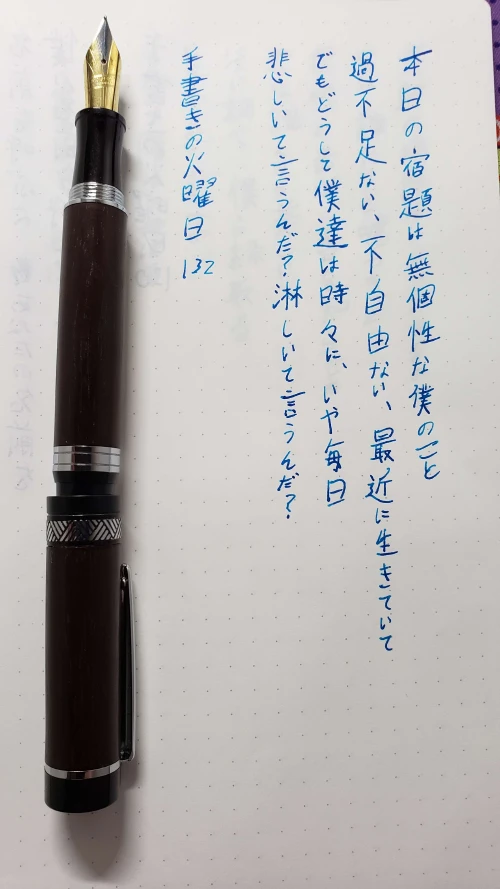 本日の宿題は無個性な僕のこと
過不足ない、不自由ない、最近に生きていて
でもどうして僕達は時々に、いや毎日
悲しいて言うんだ？淋しいて言うんだ？
手書きの火曜日 132